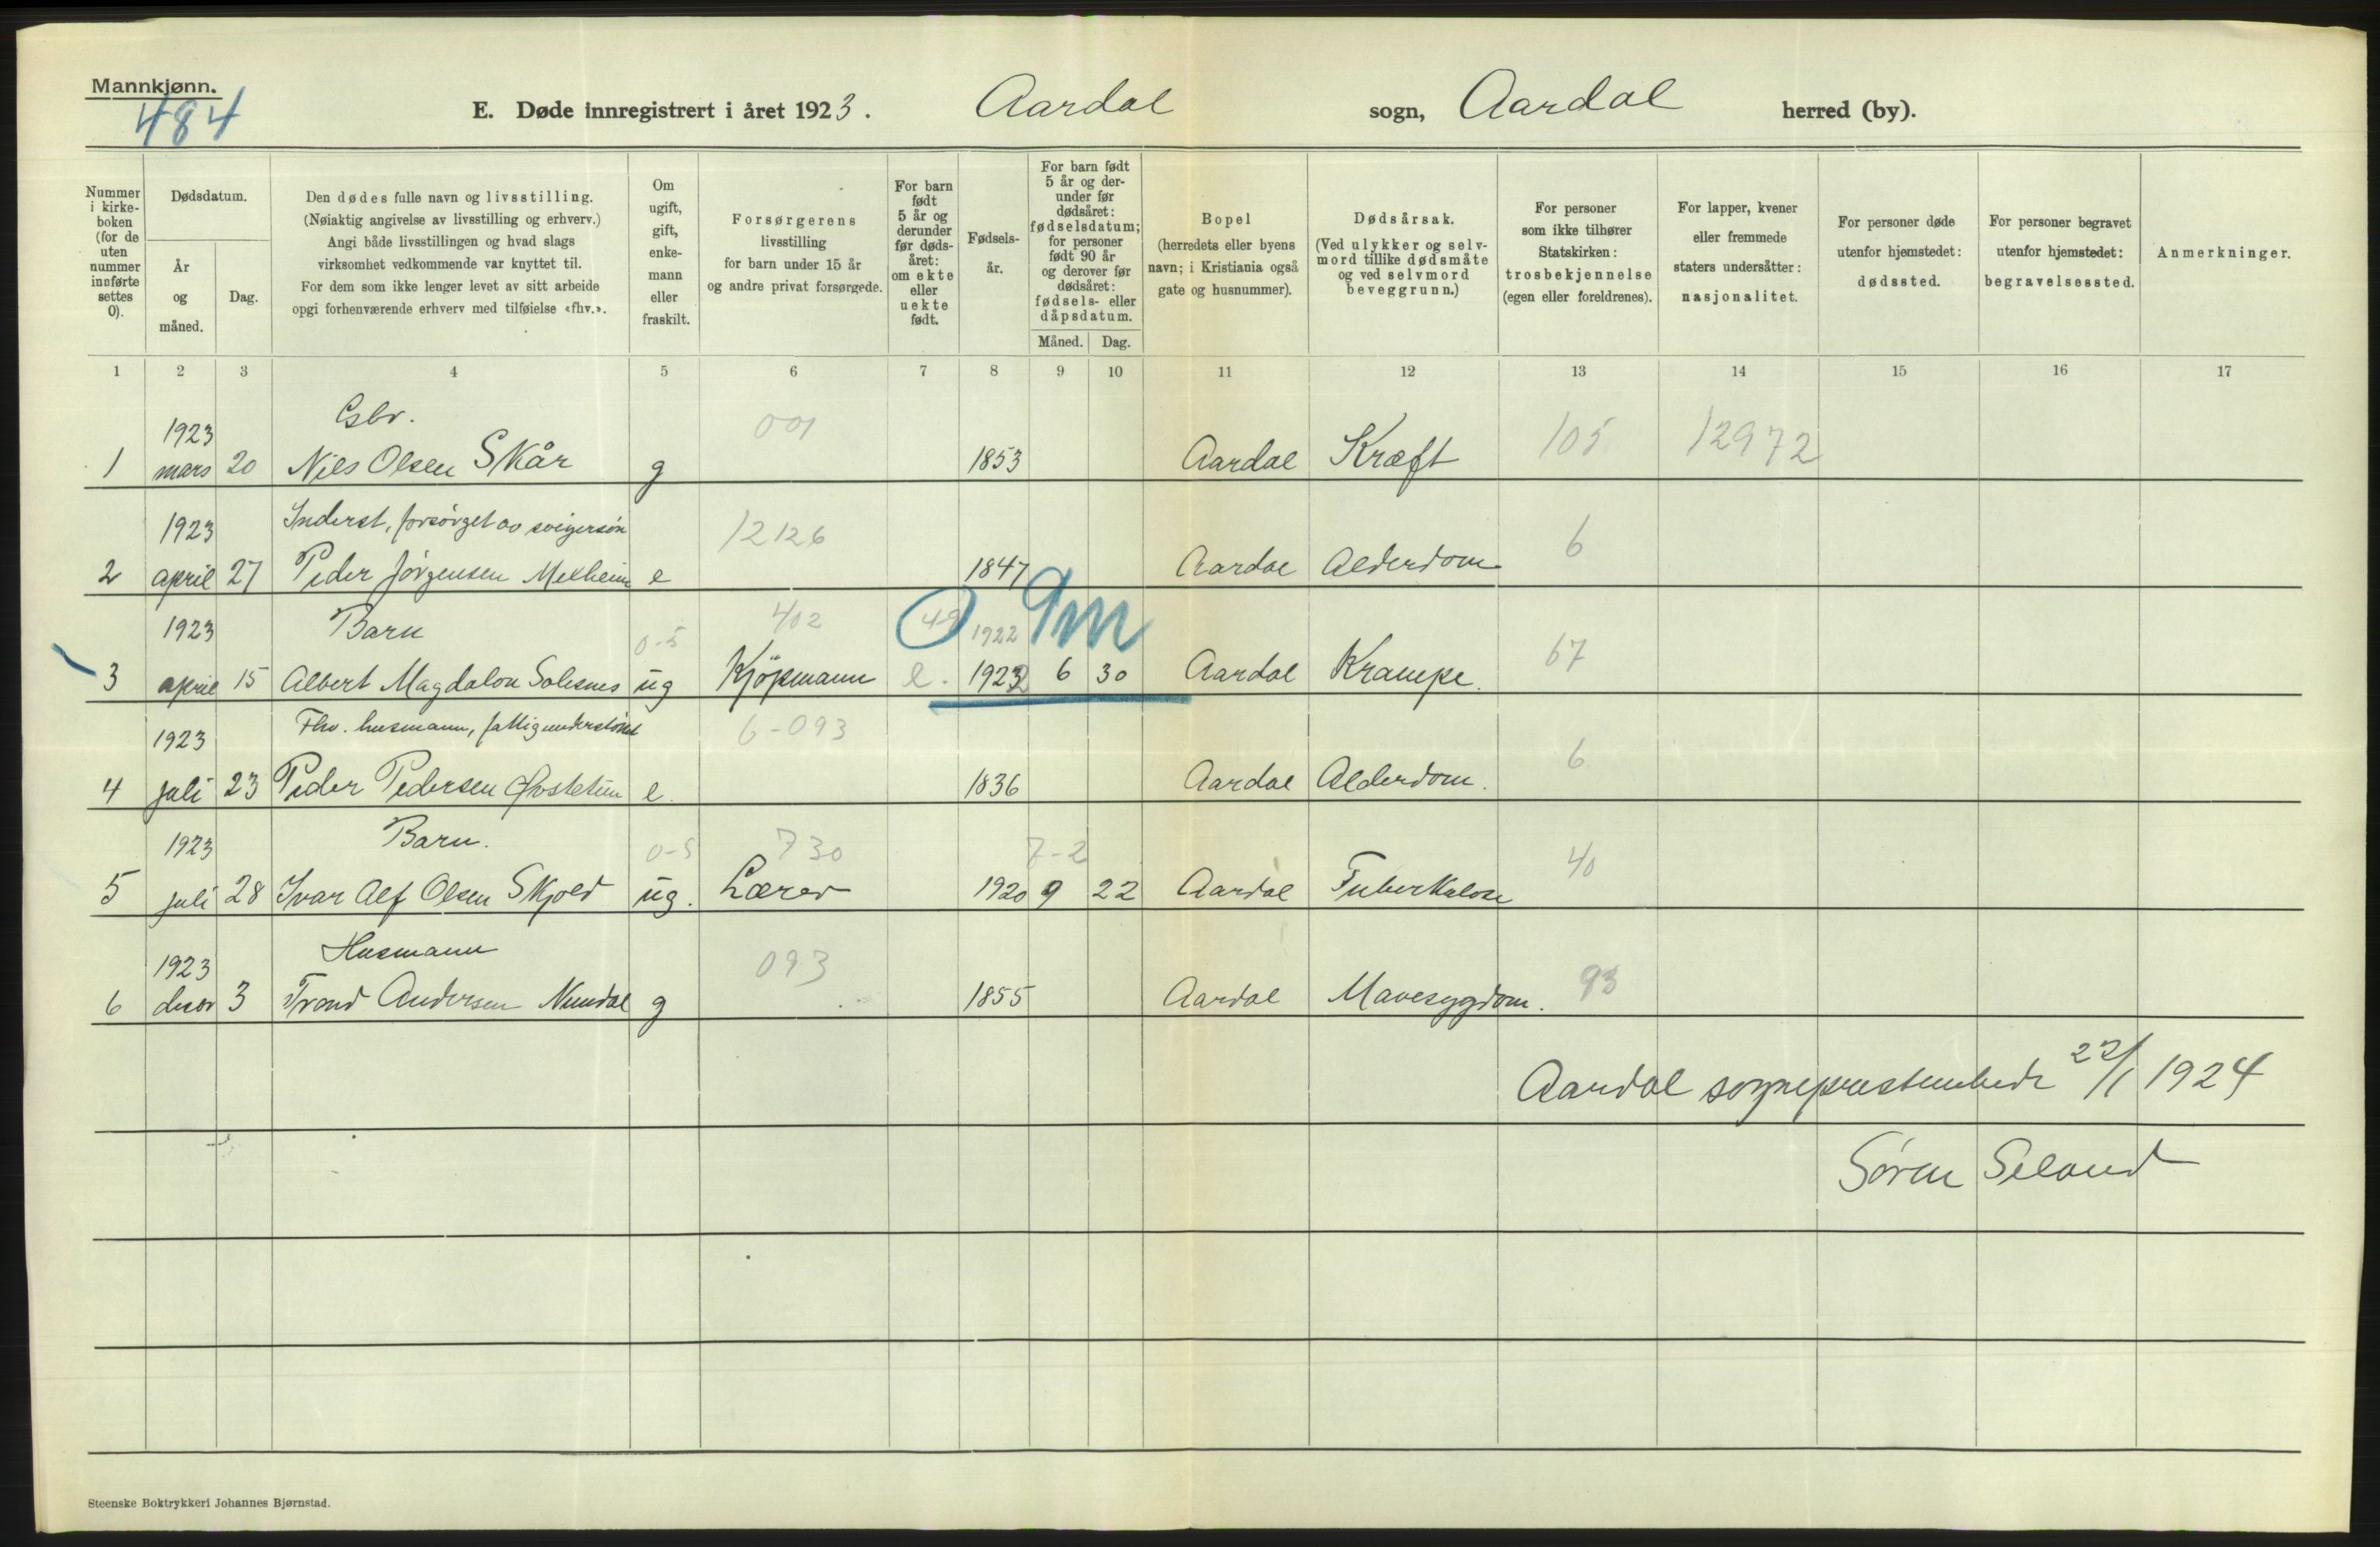 Mannkjønn.
484
E. Døde innregistrert i året 1923. Aardal sogn, Aardal herred (by).
Nummer i kirke-boken (for de uten nummer innførte settes 0).
Dødsdatum.
År og måned.
Dag.
Den dødes fulle navn og livsstilling.
(Nøiaktig angivelse av livsstilling og erhverv.)
Angi både livsstillingen og hvad slags
virksomhet vedkommende var knyttet til.
For dem som ikke lenger levet av sitt arbeide
opgi forhenværende erhverv med tilføielse «fhv.».
Om ugift, gift, enke-mann eller fraskilt.
Forsørgerens
livsstilling
for barn under 15 år
og andre privat forsørgede.
For barn født 5 år og derunder før døds-året: om ekte eller uekte født.
Fødsels-år.
For barn født 5 år og der-under før dødsåret: fødselsdatum; for personer født 90 år og derover før dødsåret: fødsels- eller dåpsdatum.
Måned. Dag.
Bopel
(herredets eller byens
navn; i Kristiania også
gate og husnummer).
Dødsårsak.
(Ved ulykker og selv-
mord tillike dødsmåte
og ved selvmord
beveggrunn.)
For personer
som ikke tilhører
Statskirken:
trosbekjennelse
(egen eller foreldrenes).
For lapper, kvener
eller fremmede
staters undersåtter:
nasjonalitet.
For personer døde
utenfor hjemstedet:
dødssted.
For personer begravet
utenfor hjemstedet:
begravelsessted.
Anmerkninger.
1 2 3 4 5 6 7 8 9 10 11 12 13 14 15 16 17
1923 Gbr. 001 105 12972
1 mars 20 Nils Olsen Skår g 1853 Aardal Kræft
1923 Inderst, forsørget av svigersøn 12126 6
2 april 27 Peder Jörgensen Melheim e 1847 Aardal Alderdom
1923 Barn 0-5 402 49 1922 9m 67
3 april 15 Albert Magdalon Solesnes ug Kjöpmann e. 1922 6 30 Aardal Krampe.
1923 Fhv. husmann, fattigunderstöttet 6-093 6
4 juli 23 Peder Pedersen e. 1836 Aardal Alderdom.
1923 Barn. 0-5 730 7-2 40
5 juli 28 Ivar Alf Olsen Skjold ug. Lærer 1920 9 22 Aardal Tuberkulose
1923 Husmann 093 93
6 decbr 3 Trond Andersen Nundal g 1855 Aardal Mavesygdom.
Aardal sogneprestembede 22/1 1924
Søren Seland
Steenske Boktrykkeri Johannes Bjørnstad.